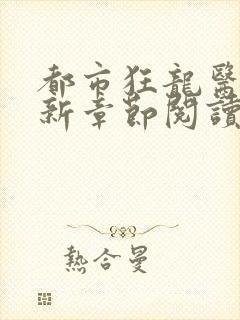 都市狂龍醫
新章節閱讀
熱合曼